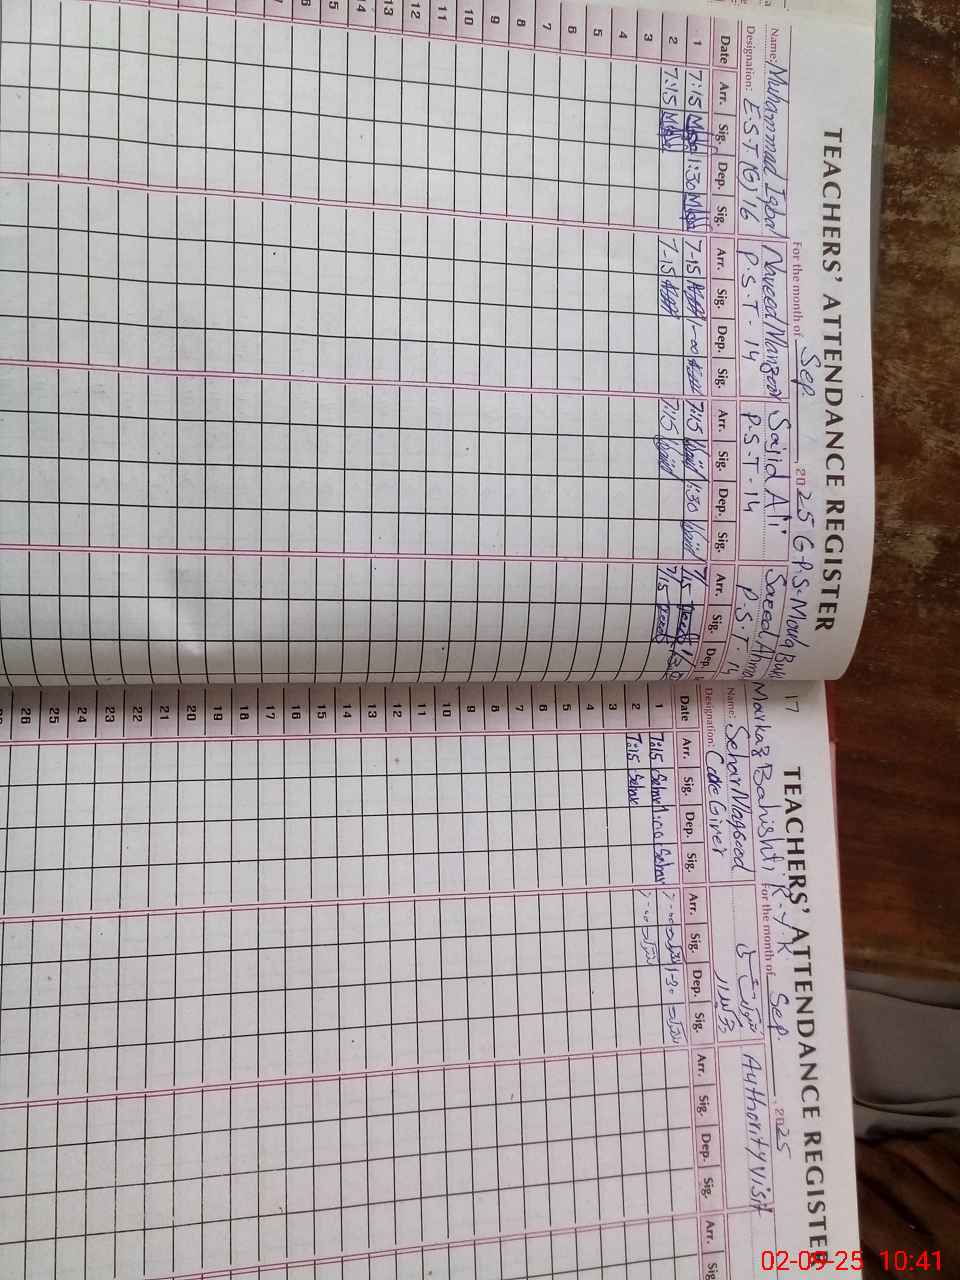 TEACHERS' ATTENDANCE REGISTER
For the month of Sep. 2025 G.P.S. Moula Bux
Name: Muhammad Iqbal Naveed Manzoor Sajid Ali Saeed Ahmad
Designation: E.S.T(G)'16 P.S.T-14 P.S.T-14 P.S.T-14
Date Arr. Sig. Dep. Sig. Arr. Sig. Dep. Sig. Arr. Sig. Dep. Sig. Arr. Sig. Dep.
1 7:15 1:30 7-15 1-00 7:15 1:30 7/15
2 7:15 7-15 7:15 7/15
3
4
5
6
7
8
9
10
11
12
13
14
15
16
TEACHERS' ATTENDANCE REGISTER
Markaz Bahishti R-Y-K For the month of Sep. 2025
Name: Sehar Maqsood Authority Visit
Designation: Care Giver
Date Arr. Sig. Dep. Sig. Arr. Sig. Dep. Sig. Arr. Sig. Dep. Sig. Arr. Sig
1 7:15 Sehar 1:00 Sehar 7-00 1-30
2 7:15 Sehar 7-00
3
4
5
6
7
8
9
10
11
12
13
14
15
16
17
18
19
20
21
22
23
24
25
26
02-09-25 10:41